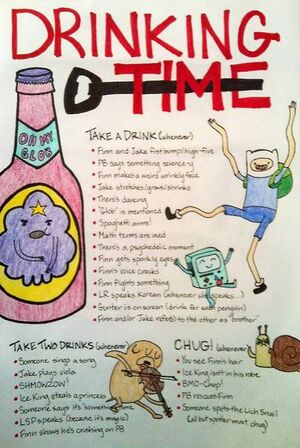 DRINKING
TIME
OH MY
GLOB
TAKE A DRINK (whenever)
Finn and Jake fist bump/high-five
PB says something science-y
Finn makes a weird wrinkly face
Jake stretches/grows/shrinks
There's dancing
"Glob" is mentioned
Spaghetti arms!
Math terms are used
There's a psychedelic moment
Finn gets sparkly eyes
Finn's voice cracks
Finn fights something
LR speaks Korean (whenever she speaks...)
Gunter is on screen (drink for each penguin)
Finn and/or Jake refer to the other as "brother"
TAKE TWO DRINKS (whenever)
Someone sings a song
Jake plays viola
SHMOWZOW!
Ice King steals a princess
Someone says it's Something time
LSP speaks (because it's magic)
Finn shows he's crushing on PB
CHUG! (whenever)
You see Finn's hair
Ice King isn't in his robe
BMO-Chop!
PB rescues Finn
Someone spots the Lich Snail
(all but spotter must chug)